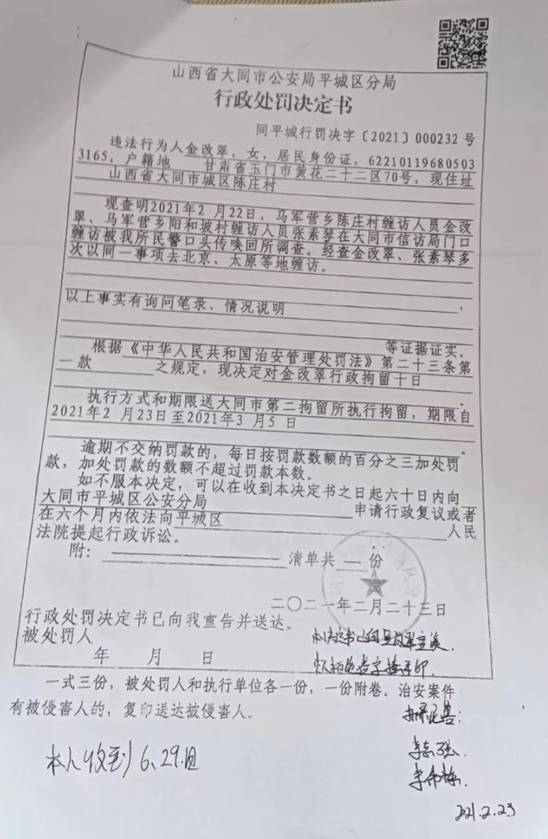 山西省大同市公安局平城区分局
行政处罚决定书
同平城行罚决字〔2021〕000232 号
违法行为人金改翠，女，居民身份证，62210119680503
3165，户籍地 甘肃省玉门市黄花二十二区70号，现住址
山西省大同市城区陈庄村
现查明2021年2 月22日，马军营乡陈庄村缠访人员金改
翠、马军营乡阳和坡村缠访人员张素琴在大同市信访局门口
缠访被我所民警口头传唤回所调查。经查金改翠、张素琴多
次以同一事项去北京、太原等地缠访。
以上事实有询问笔录、情况说明，
等证据证实。
根据《中华人民共和国治安管理处罚法》第二十三条第
一款 之规定，现决定对金改翠行政拘留十日
执行方式和期限送大同市第二拘留所执行拘留，期限自
2021年2 月23日至2021年3 月5 日 。
逾期不交纳罚款的，每日按罚款数额的百分之三加处罚
款，加处罚款的数额不超过罚款本数。
如不服本决定，可以在收到本决定书之日起六十日内向
大同市平城区公安分局 申请行政复议或者
在六个月内依法向平城区 人民
法院提起行政诉讼。
附： 清单共 — 份
二〇二一年二月二十三日
行政处罚决定书已向我宣告并送达。
被处罚人
年 月 日
一式三份，被处罚人和执行单位各一份，一份附卷。治安案件
有被侵害人的，复印送达被侵害人。
本人收到 6.29.日
2021.2.23